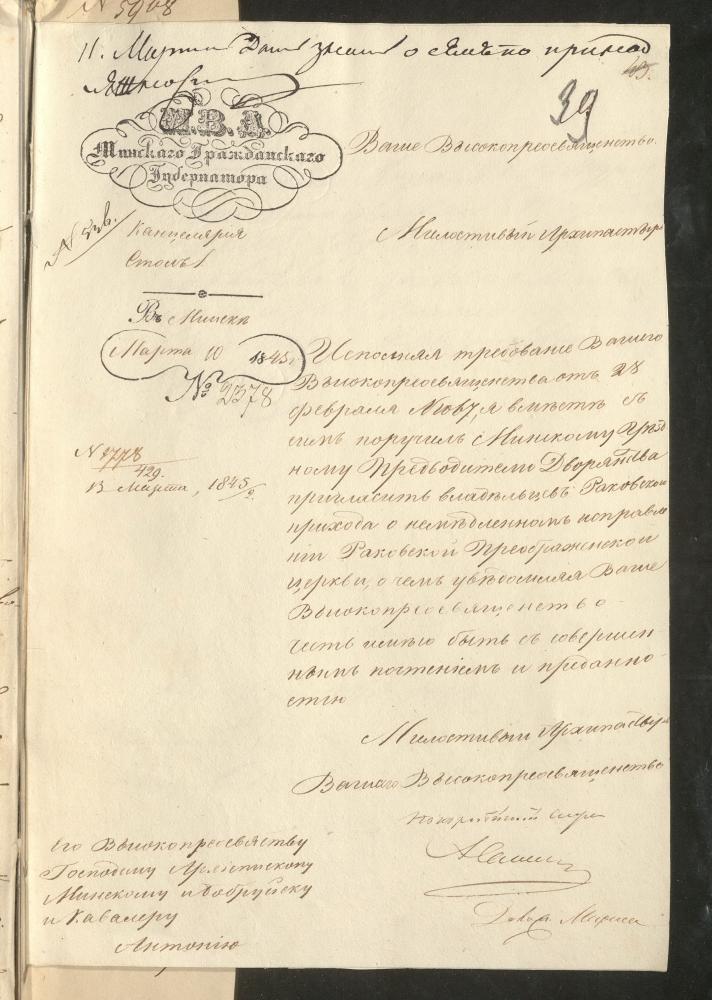 N 5908
11. Марта Дать знать о семъ по
39
45.
М.В.Д.
Минскаго Гражданскаго
Губернатора
Ваше Высокопреосвященство.
Милостивый Архипастырь
Канцелярия
Столъ 1
Въ Минскѣ
Марта 10 1845 г.
№ 2378
N 1778
429.
13 Марта, 1845 г.
Исполняя требованіе Вашего
Высокопреосвященства отъ 28
февраля N 1087, я вмѣстѣ съ
симъ поручилъ Минскому Уѣзд
ному Предводителю Дворянства
пригласить владѣльцевъ Раковскаго
прихода о немѣдленномъ исправле
ніи Раковской Преображенской
церкви, о чемъ увѣдомляя Ваше
Высокопреосвященство
честь имѣю быть съ совершен-
нымъ почтеніемъ и преданно-
стію
Милостивый Архипастырь
Вашего Высокопреосвященства
покорнѣйшій слуга
Его Высокопреосвяству
Господину Архіепископу
Минскому и Бобруйску
и Кавалеру
Антонію